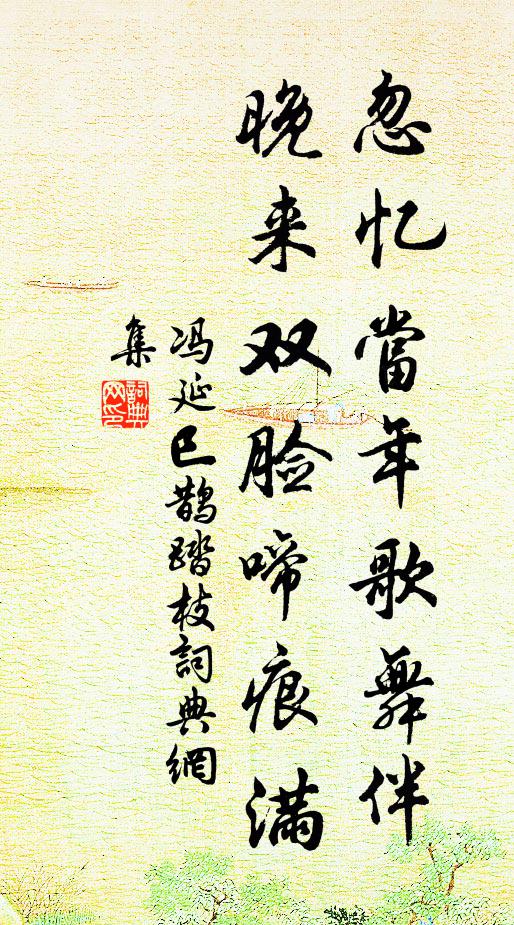 忽忆當年歌舞伴
晚来双脸啼痕满
冯延巳鹊踏枝詞典網
集
詞典